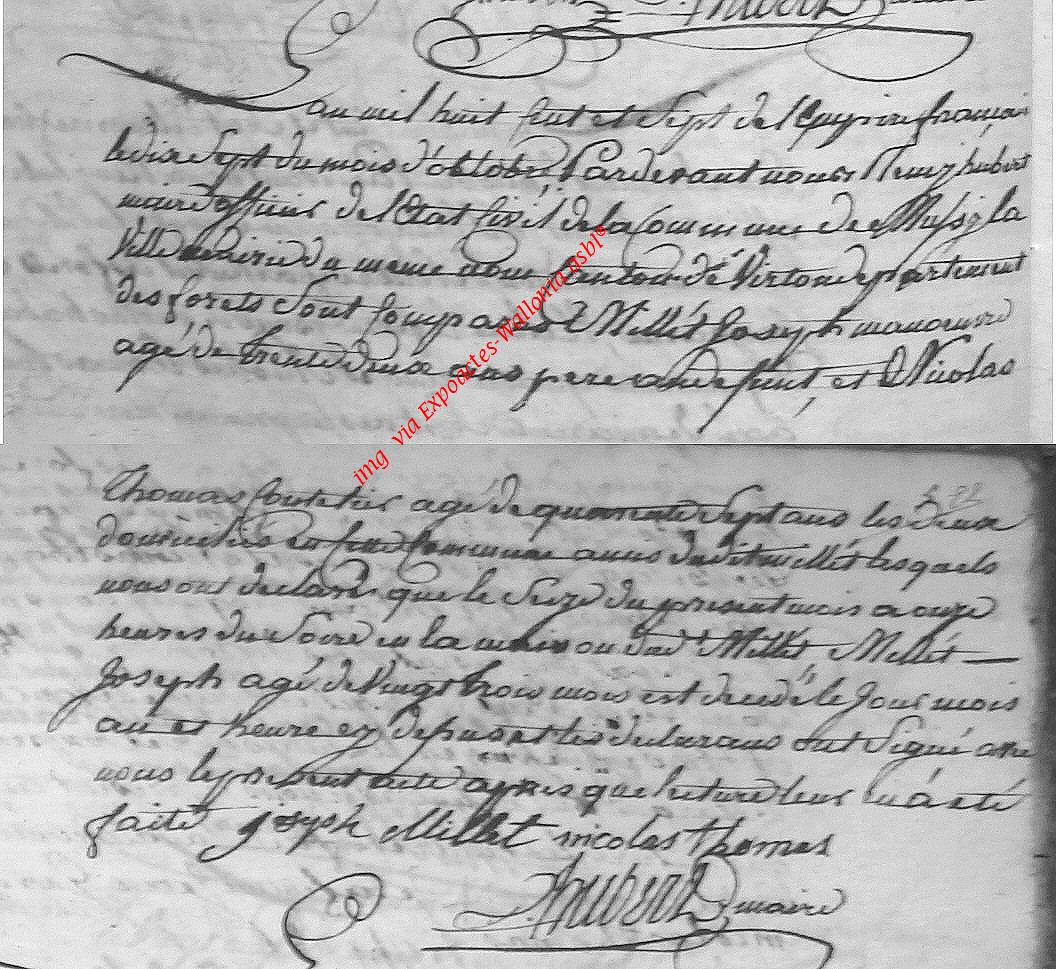 hubert maire
an mil huit cent et sept de l'Empire francais
le dix sept du mois d'octobre Pardevant nous Remy hubert
maire officier de l'Etat Civil de la Commune de Mussy la
Ville mairie du meme nom Canton de Virton departement
des forets Sont Comparus Millet Joseph manoeuvre
agé de trente deux ans pere au defunt, et Nicolas
Thomas agé de quarante Sept ans les deux
domiciliés en cette Commune amis dudit millet lesquels
nous ont declaré que le Seize du present mois a onze
heures du Soire en la maison dud.t Millet Millet
Joseph agé de Vingt trois mois est decedé le Jour mois
an et heure cy dessus et les declarans ont Signé avec
nous le present acte apres que lecture leur en a été
faite joseph Millet nicolas thomas
hubert maire
img via Expoactes-Wallonia asbl°